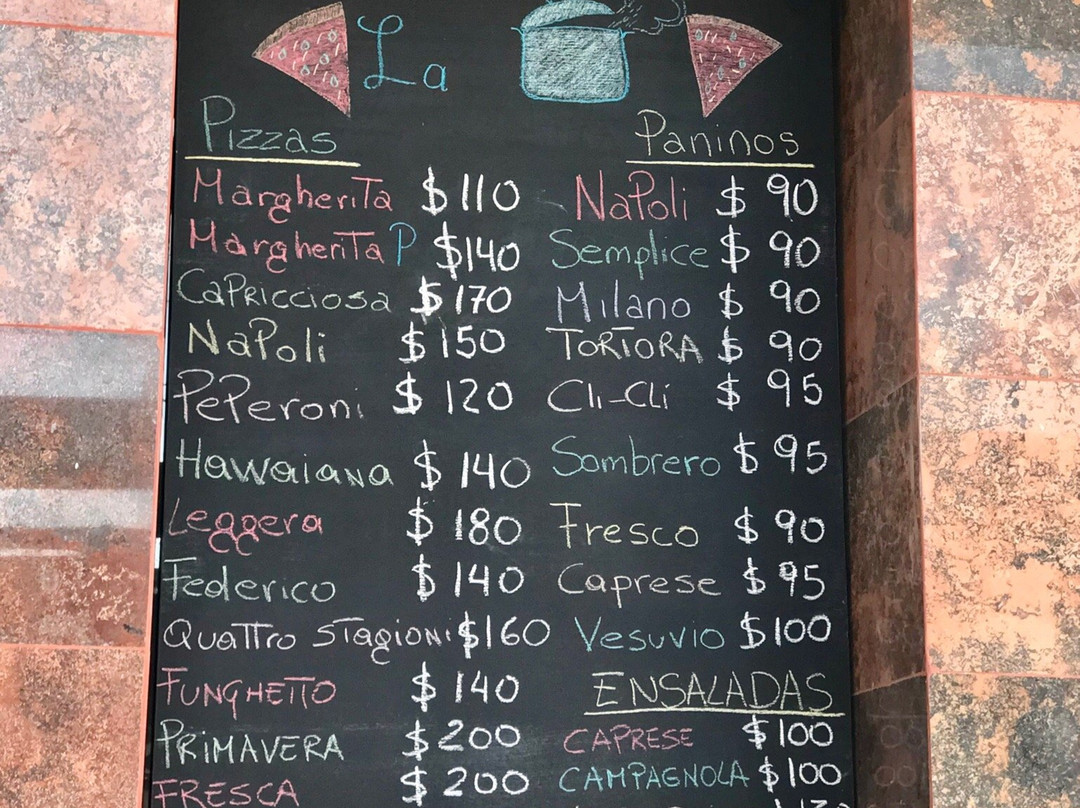 La
Pizzas
Margherita $110
Margherita P $140
Capricciosa $170
Napoli $150
PePeroni $120
Hawaiana $140
Leggera $180
Federico $140
Quattro Stagioni $160
FUNGHETTO $140
PRIMAVERA $200
FRESCA $200
Paninos
Napoli $90
Semplice $90
Milano $90
TORTORA $90
Cli-Cli $95
Sombrero $95
Fresco $90
Caprese $95
Vesuvio $100
ENSALADAS
CAPRESE $100
CAMPAGNOLA $100